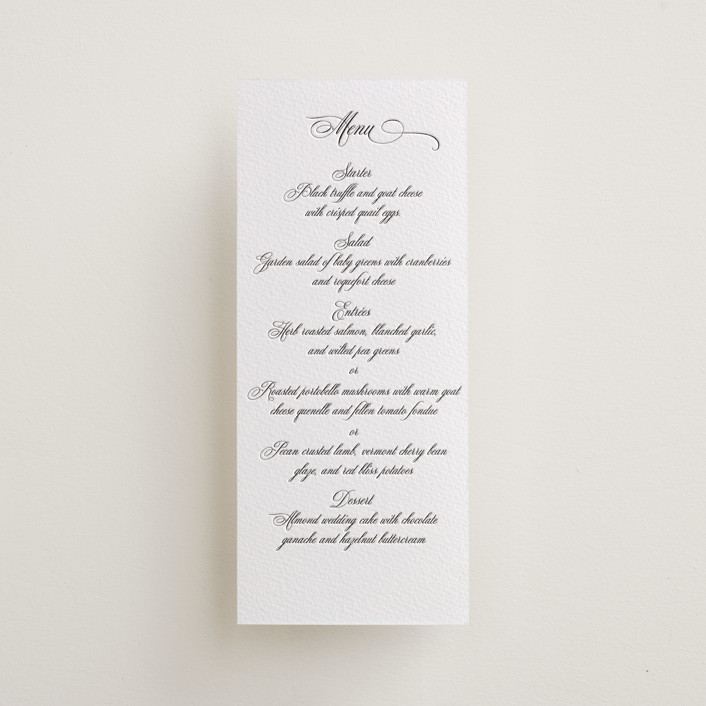 Menu
Starter
Black truffle and goat cheese
with crisped quail eggs.
Salad
Garden salad of baby greens with cranberries
and roquefort cheese
Entrées
Herb roasted salmon, blanched garlic,
and wilted pea greens
or
Roasted portobello mushrooms with warm goat
cheese quenelle and fellen tomato fondue
or
Pecan crusted lamb, vermont cherry bean
glaze, and red bliss potatoes
Dessert
Almond wedding cake with chocolate
ganache and hazelnut buttercream